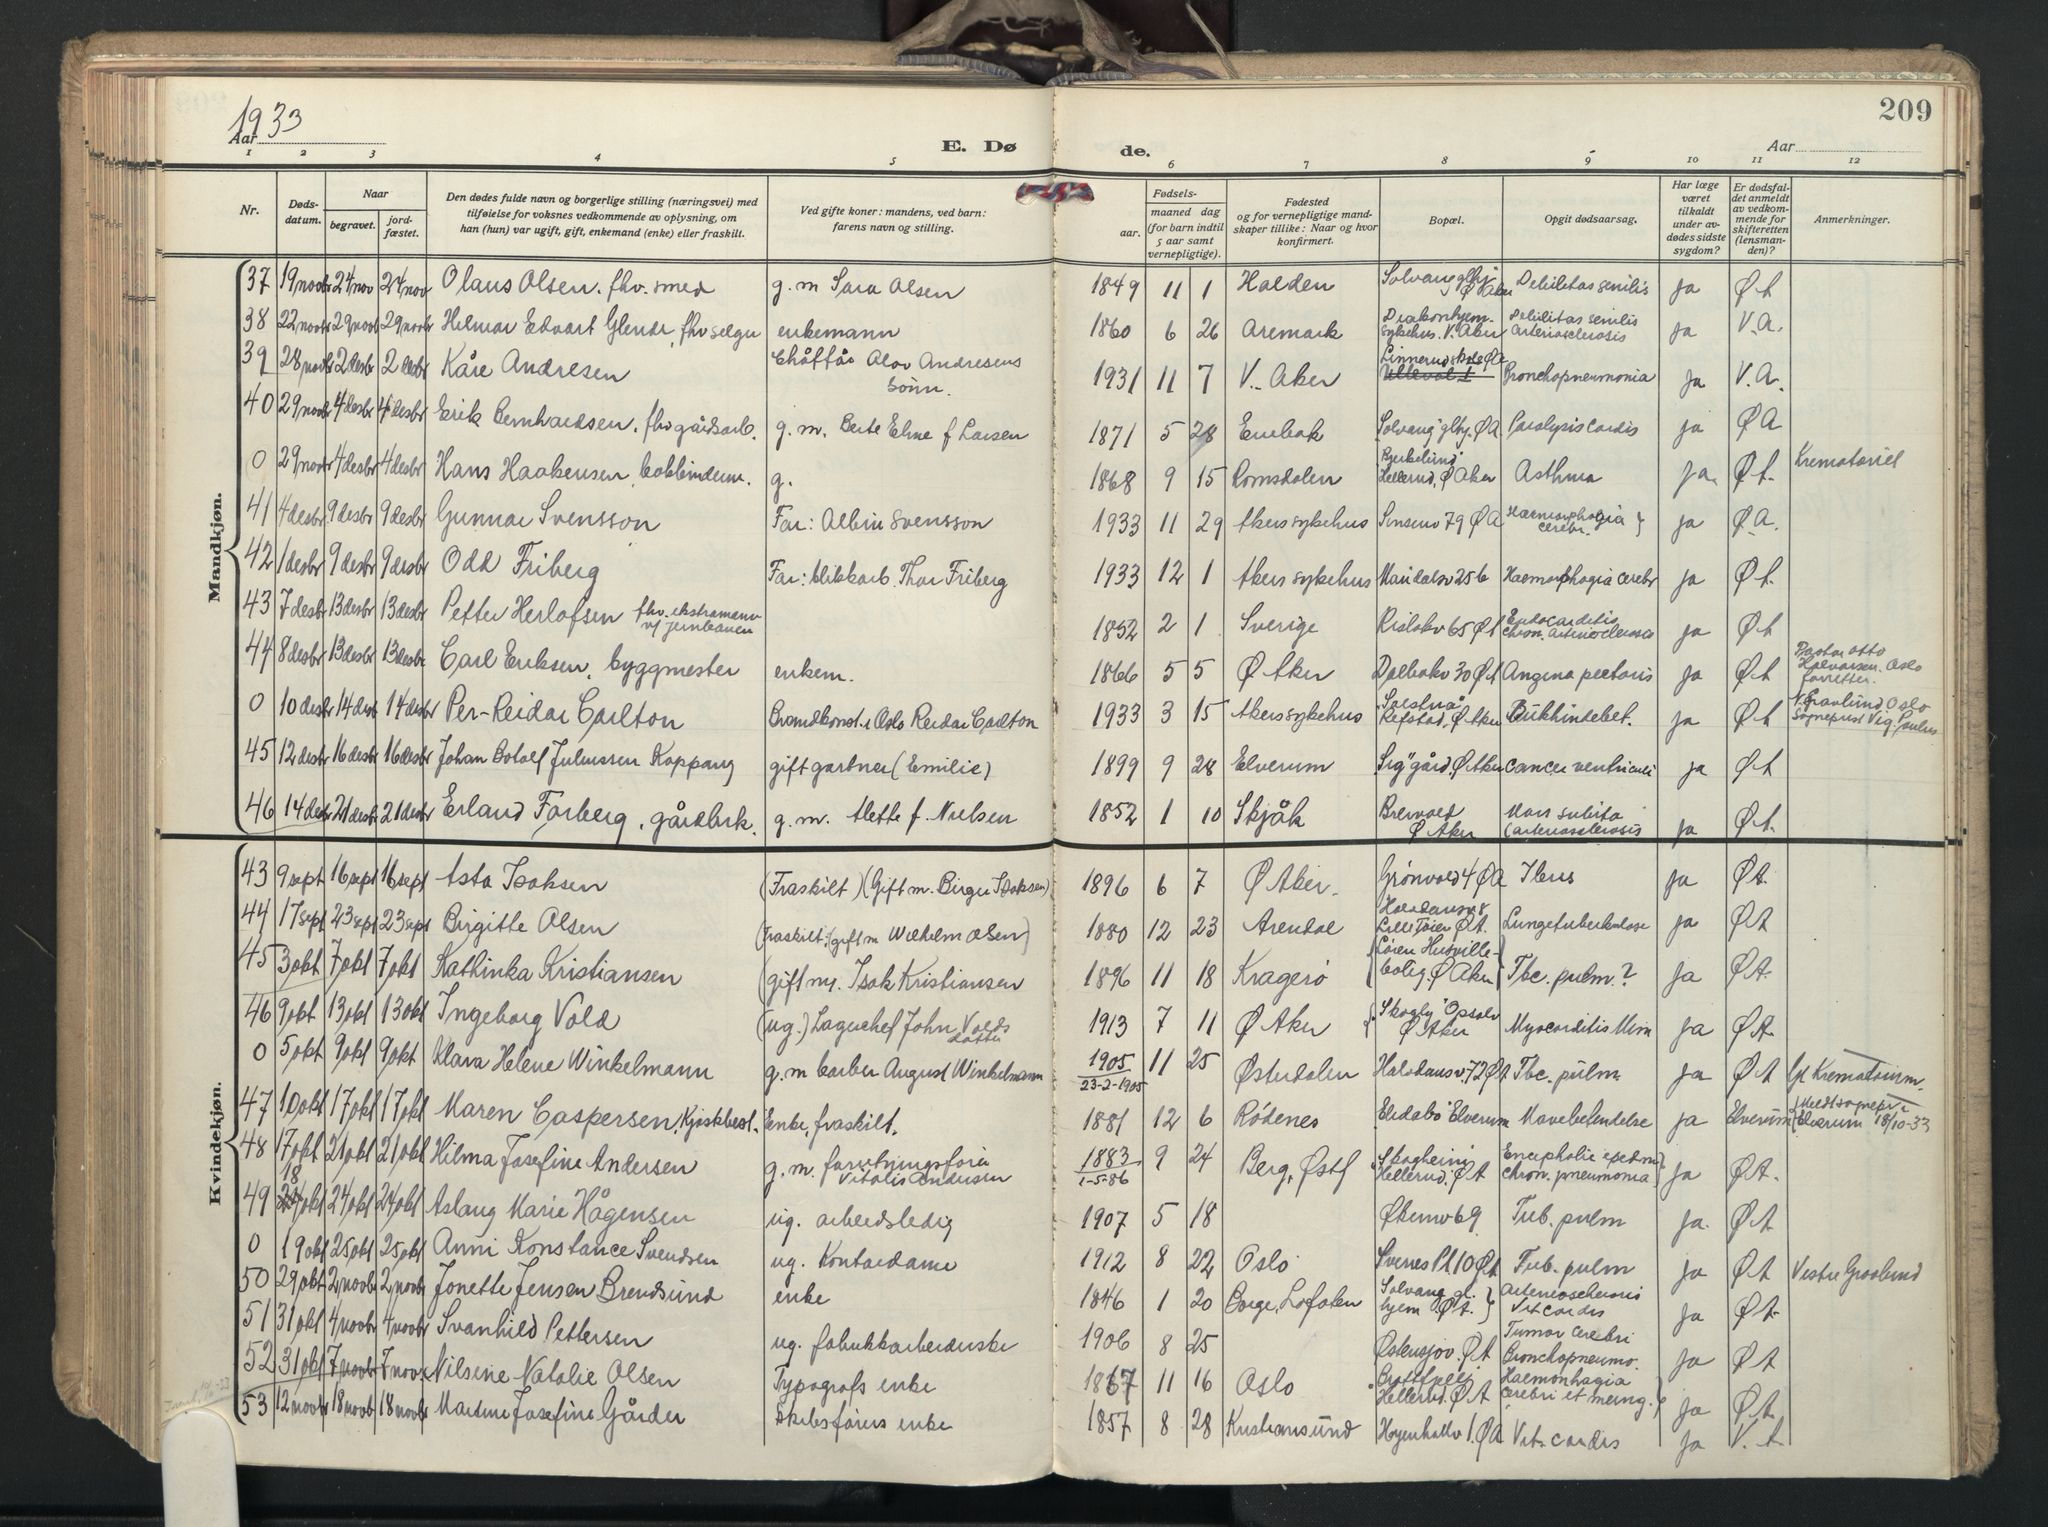 209
1933
Aar
E. Dø
de.
Aar
1 2 3 4 5 6 7 8 9 10 11 12
Nr.
Døds-
datum.
Naar
begravet.
jord-
fæstet.
Den dødes fulde navn og borgerlige stilling (næringsvei) med
tilføielse for voksnes vedkommende av oplysning, om
han (hun) var ugift, gift, enkemand (enke) eller fraskilt.
Ved gifte koner: mandens, ved barn:
farens navn og stilling.
Fødsels-
aar.
maaned dag
(for barn indtil
5 aar samt
vernepligtige).
Fødested
og for vernepligtige mand-
skaper tillike: Naar og hvor
konfirmert.
Bopæl.
Opgit dødsaarsag.
Har læge
været
tilkaldt
under av-
dødes sidste
sygdom?
Er dødsfal-
det anmeldt
av vedkom-
mende for
skifteretten
(lensman-
den)?
Anmerkninger.
Mandkjøn.
37 19 novbr 24 nov 24 nov Olaus Olsen. fhv. smed g. m Sara Olsen 1849 11 1 Halden Solvang glhj Ø Aker Debilitas senilis ja Ø A
38 22 novbr 29 novb 29 novbr Helmar Edvart, fhv selger enkemann 1860 6 26 Aremark Diakonhjem sykehus. V. Aker Debilitas senilis arteriosclerosis ja V.A.
39 28 novbr 2 desbr 2 desbr Kåre Andresen Andresens sønn. 1931 11 7 V. Aker Linnerud skole Ø A Bronchopneumonia ja V.A.
40 29 novbr 4 desbr 4 desbr Erik Bernhardsen. fhv gårdsarb. g. m. f Larsen 1871 5 28 Enebak Solvang glhj. Ø A Paralysis cordis ja Ø A
0 29 novbr 4 desbr 4 desbr Hans Haakensen g. 1868 9 15 Romsdalen Hellerud, Ø Aker Asthma ja. Ø A. Krematoriet
41 4 desbr 9 desbr 9 desbr Gunnar Svensson Far: Albin Svensson 1933 11 29 Akers sykehus Sinsenv 79 Ø A Haemorrhagia cerebr. ja Ø A.
42 1 desbr 9 desbr 9 desbr Odd Friberg Far: blikkarb. Thor Friberg 1933 12 1 Akers sykehus Maridalsv 256 Haemorrhagia cerebr ja Ø A.
43 7 desbr 13 desbr 13 desbr Petter Herlofsen fhv. ekstramann v/ jernbanen 1852 2 1 Sverige Risløkv 65 Ø A Endocarditis chron. arteriosclerosis ja Ø A
44 8 desbr 13 desbr 13 desbr Carl Eriksen, byggmester enkem. 1866 5 5 Ø Aker Dalbakv 30 Ø A Angina pectoris ja Ø A Pastor Otto Halvorsen. Oslo forretter.
0 10 desbr 14 desbr 14 desbr Per-Reidar Carlton Brandkonst. i Oslo Reidar Carlton 1933 3 15 Akers sykehus Refstad, Ø Aker Bukhindebet. ja Ø A N. Gravlund Oslo
45 12 desbr 16 desbr 16 desbr Johan Botolf Juliussen Koppang gift gartner (Emilie) 1899 9 28 Elverum gård. Ø Aker Cancer ventriculi ja Ø A
46 14 desbr 21 desbr 21 desbr Erland Forberg, gårdbrk. g. m. Mette f. Nielsen 1852 1 10 Skjåk Brevold Ø Aker Mors subita (arteriosclerosis ja Ø A.
Kvindekjøn.
43 9 sept 16 sept 16 sept Asta Isaksen (Fraskilt) (Gift m. Birger Isaksen) 1896 6 7 Ø Aker. Grønvold 4 Ø A Ileus ja Ø A.
44 17 sept 23 sept 23 sept Birgitte Olsen (Fraskilt; gift m Wilhelm Olsen) 1880 12 23 Arendal Lille Tøien Ø A. Lungetuberkulose ja Ø A
45 3 okt 7 okt 7 okt Kathinka Kristiansen (gift m. Isak Kristiansen 1896 11 18 Kragerø bolig. Ø Aker Tbc. pulm.? ja Ø A.
46 9 okt 13 okt 13 okt Ingeborg Vold (ug.) Lagerchef John Volds datter 1913 7 11 Ø Aker Skogly Opsalv Ø Aker Myocarditis ja Ø A.
0 5 okt 9 okt 9 okt Klara Helene Winkelmann g. m barber August Winkelmann 1905 23-2-1905 11 25 Østerdalen 72 Ø A Tbc. pulm. ja Ø A Krematorium.
47 10 okt 17 okt 17 okt Maren Caspersen, Kjøskbest. Enke, fraskilt. 1881 12 6 Rødenes Elverum Mavebetendelse ja Elverum Meldt sognepr i Elverum 18/10-33
48 17 okt 21 okt 21 okt Hilma Josefine Andersen g. m. forretningsfører Vitalis Andersen 1883 1-5-86 9 24 Berg, Østf Skogheim Hellerud. Ø A chron. pneumonia ja Ø A.
49 18 okt 24 okt 24 okt Aslaug Marie Hågensen ug. arbeidsledig 1907 5 18 Økernv 69 Tub. pulm ja. Ø A
0 19 okt 25 okt 25 okt Anni Konstance Svendsen ug. Kontordame 1912 8 22 Oslo Svenes Pl 10 Ø A Tub. pulm ja Ø A Vestre Gravlund
50 29 okt 2 novbr 2 novbr Jonette Jensen Brendsund enke 1846 1 20 Borge, Lofoten Solvang gl. hjem. Ø A. Arteriosclerosis Vit. cordis ja Ø A.
51 31 okt 4 novbr 4 novbr Svanhild Pettersen ug. fabrikkarbeiderske 1906 8 25 Østensjøv. Ø A Tumor cerebri Bronchopneumo. ja Ø A
52 31 okt 7 novbr 7 nov. Nilsine Natalie Olsen Typografs enke 1867 11 16 Oslo Hellerud. Ø A Haemorrhagia cerebri et mening. ja Ø A
53 12 novbr 18 novb 18 novbr Martine Josefine Gårder Skibsførers enke 1857 8 28 Kristiansund Høyenhallv 1. Ø A Vit. cordis ja V. A